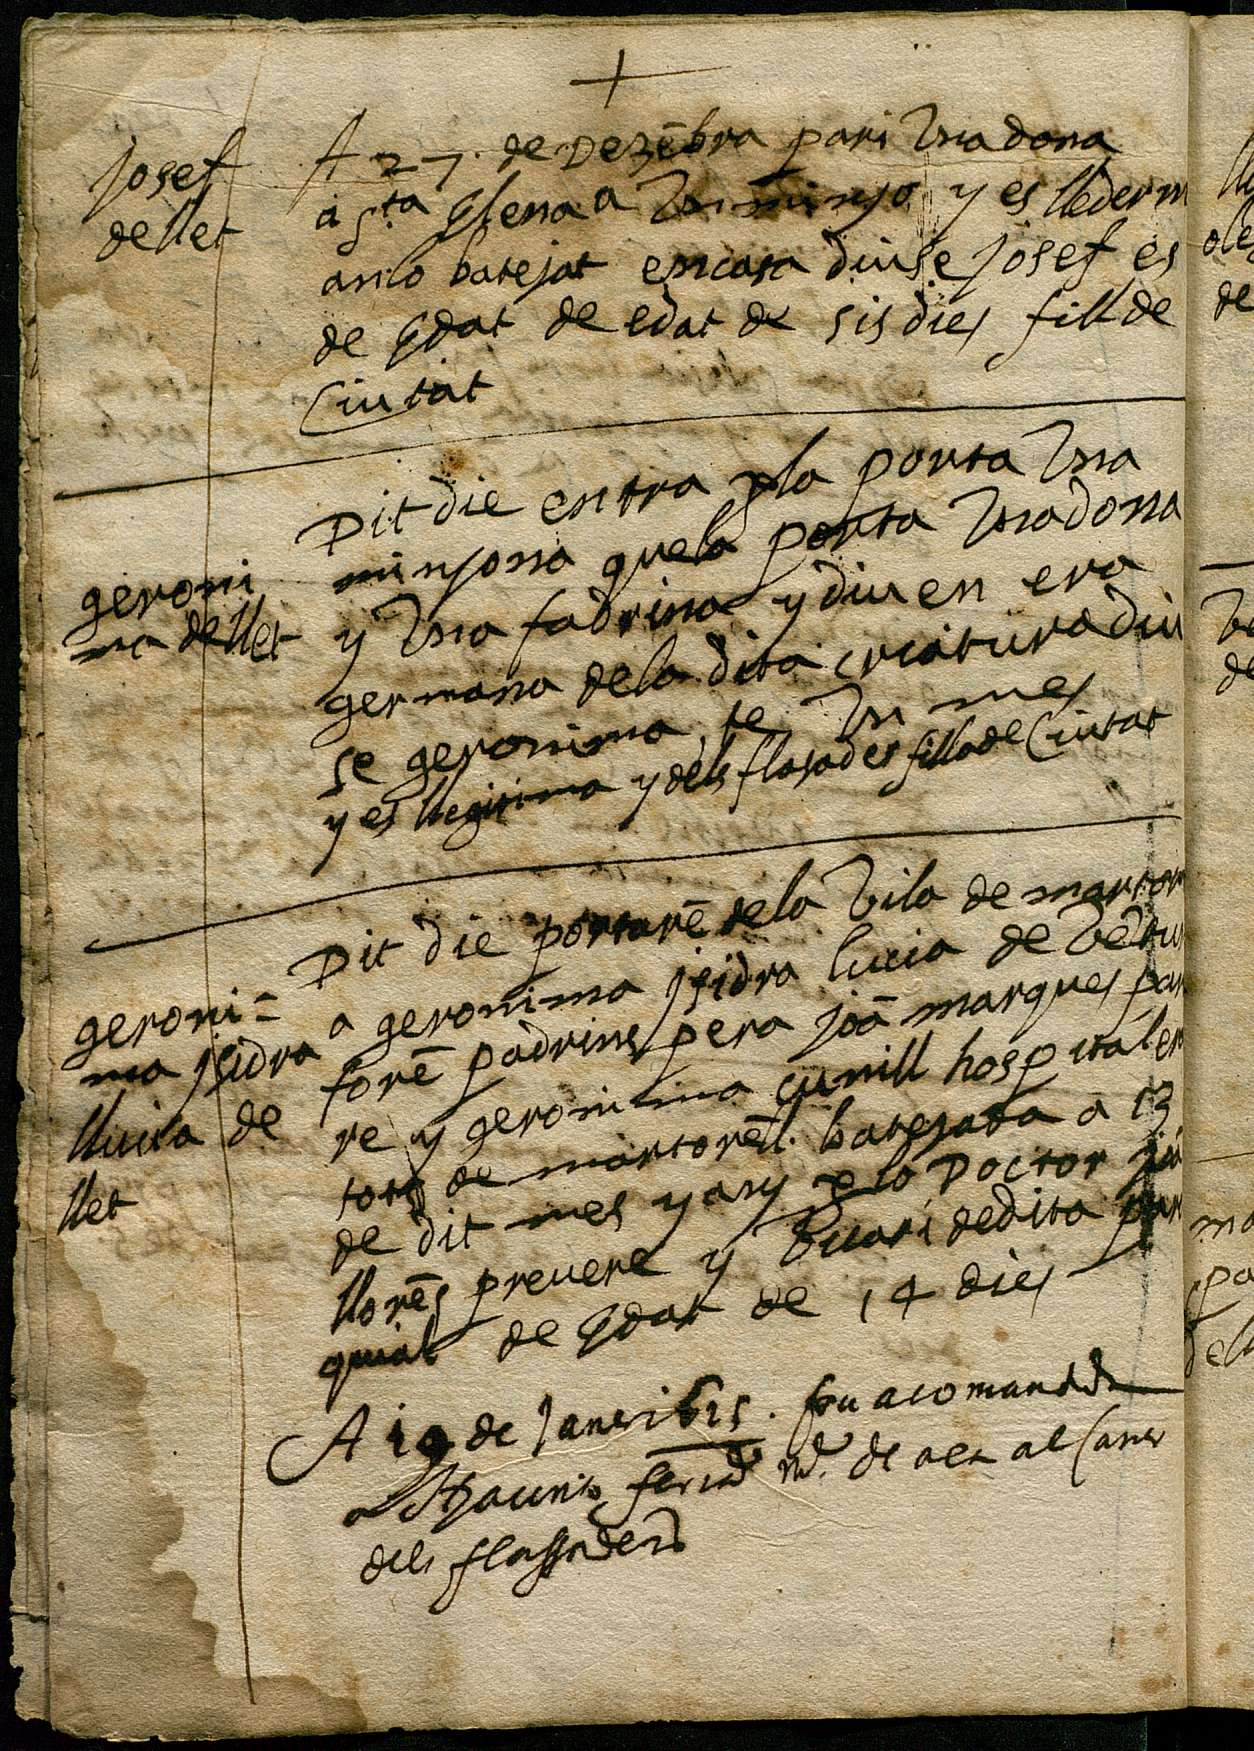 +
Josef
de llet
A 27 de Dezẽbra pari Una dona
a Sta Elena a Un minyo y es llederm
anco batejat encasa diuse Josef es
de Edat de edat de sis dies fill de
Ciutat
geroni
ma de llet
Dit die entra pla porta Una
minyona quela porta Una dona
y Una fadrina y diuen era
germana dela dita criatura diu
se geronima te Un mes
y es llegitima y dels flasades filla de Ciutat
geroni=
ma jsidra
llucia de
llet
Dit die portarẽ dela Vila de martor
a geronima jsidra lucia de
forẽ padrins pera joã marques par
re y geronima cunill hospitaler
tots de martorell. batejada a 13
de dit mes y any p lo Doctor
llorẽs preuere y Vicari dedita par
quial de Edat de 14 dies
A 19 de Janer 1615. fou acomanada
a de al Carrer
dels flassaders